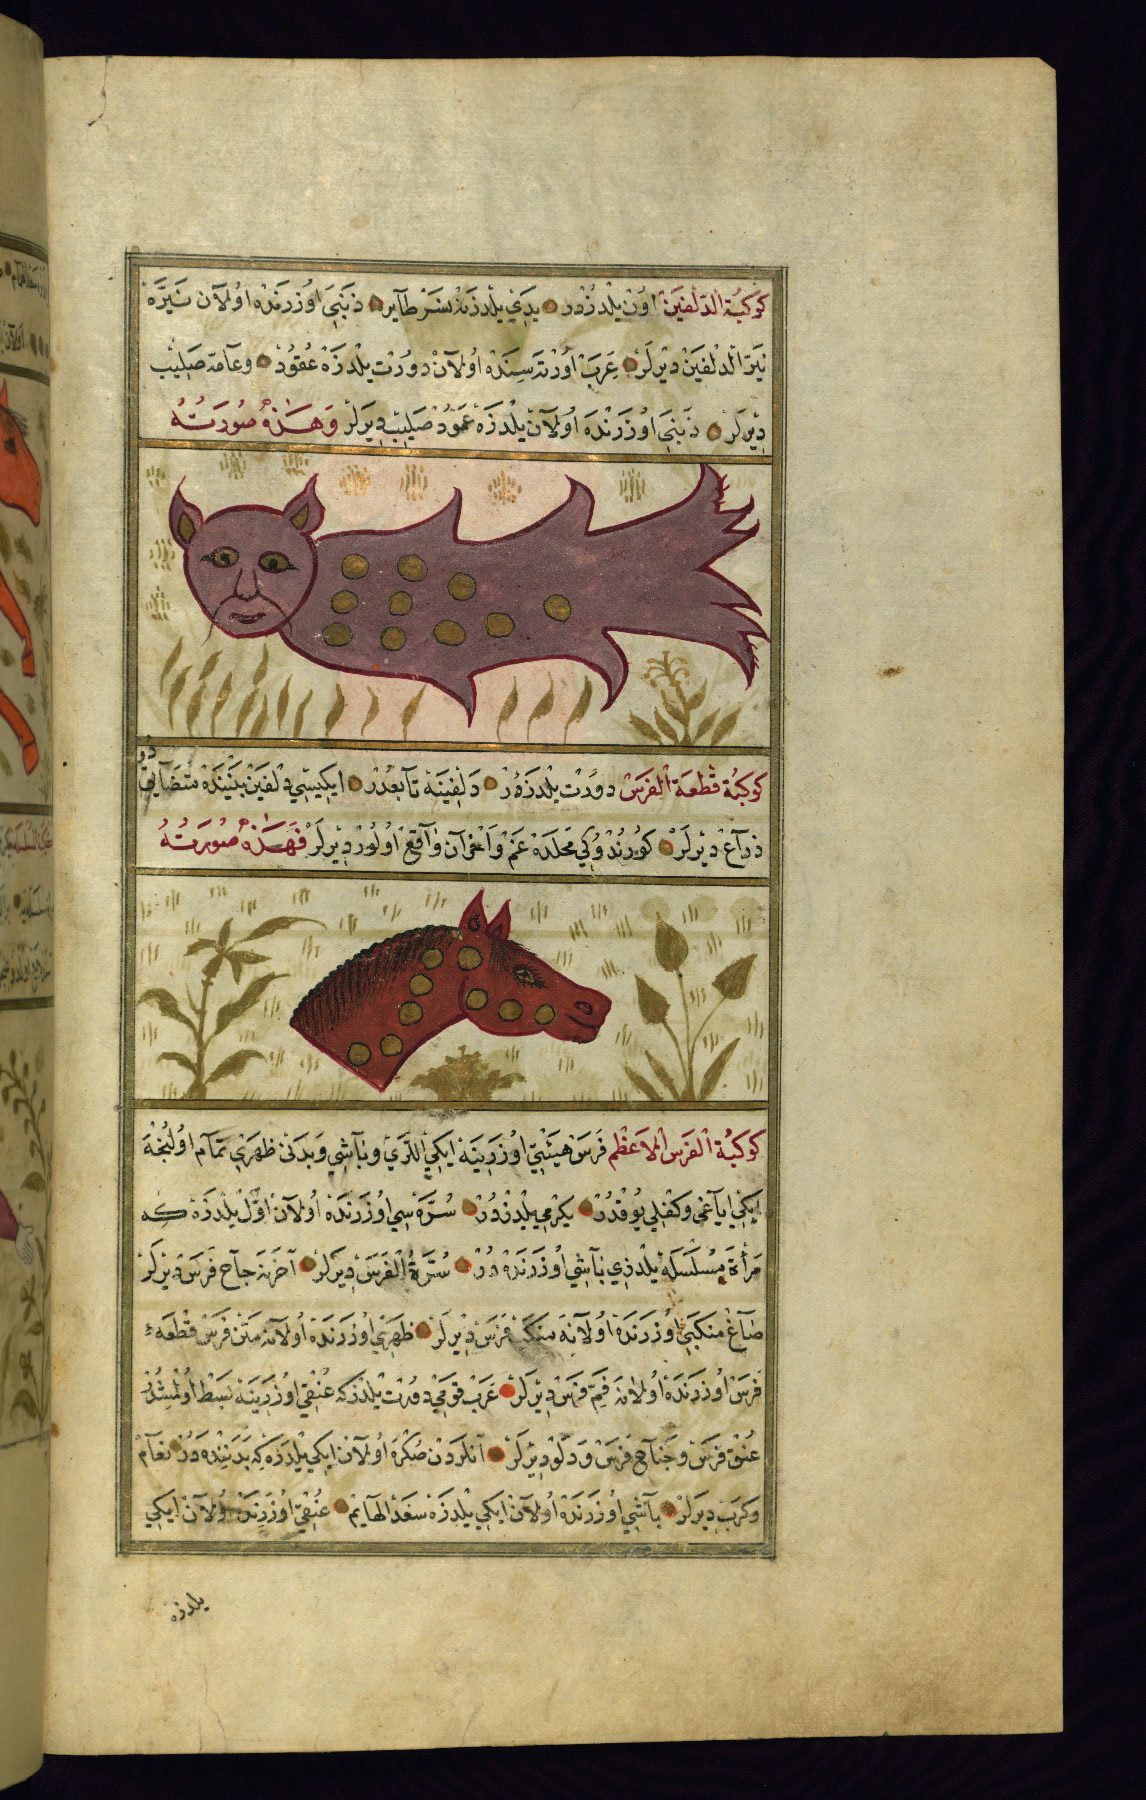 كوكبة الدلفين اون يلدزدر يدي يلدزنه نسر طاير ذنبي اوزرنده اولان نيره
نير الدلفين ديرلر عرب اورته سنده اولان دورت يلدزه عقود وعامه صليب
ديرلر ذنبي اوزرنده اولان يلدزه عمود صليب ديرلر وهذه صورته
كوكبة قطعة الفرس دورت يلدزه در دلفينه تابعدر ايكيسي دلفين بيننده متضايق در
ذراع ديرلر كورندوكي محلده غم واحزان واقع اولور ديرلر فهذه صورته
كوكبة الفرس الاعظم فرس هيئتي اوزرينه ايكي اللري وباشي وبدني ظهري تمام اولنجه
ايكي اياغي وكفلي يوقدر يكرمي يلدزدر سره سي اوزرنده اولان اول يلدزه كه
مرأة مسلسله يلدزي باشي اوزرنده در سرة الفرس ديرلر آخرنه جناح فرس ديرلر
صاغ منكبي اوزرنده اولانه منكب فرس ديرلر ظهري اوزرنده اولانه متن فرس قطعهٔ
فرس اوزرنده اولانه فم فرس ديرلر عرب قومي دورت يلدزكه عنقي اوزرينه بسط اولمشدر
عنق فرس وجناح فرس ودلو ديرلر آنلردن صكره اولان ايكي يلدزه كه بدننده در نعام
وكرب ديرلر باشي اوزرنده اولان ايكي يلدزه سعد الهايم عنقي اوزرنده اولان ايكي
يلدزه